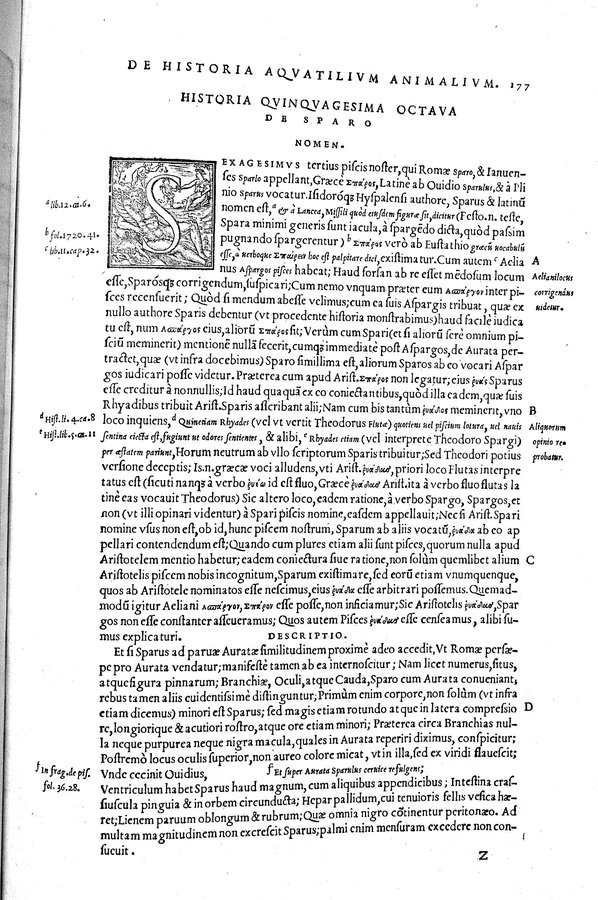 DE HISTORIA AQVATILIVM ANIMALIVM. 177
HISTORIA QVINQVAGESIMA OCTAVA
DE SPARO
NOMEN.
SEXAGESIMVS tertius piscis noster, qui Romæ Sparo, & Ianuen-
ses Sparlo appellant, Græcè Σπάρος, Latinè ab Ouidio Sparulus, & à Pli
nio Sparus vocatur. Isidorósqȝ Hyspalensi authore, Sparus & latinũ
a lib. 12. ca. 6.
nomen est, a & à Lancea, Missili quòd eiusdem figuræ sit, dicitur (Festo. n. teste,
Spara minimi generis sunt iacula, à spargẽdo dicta, quòd passim
b fol. 1720. 41.
pugnando spargerentur) b Σπάρος verò ab Eustathio græcũ vocabulũ
c lib. 11. cap. 32.
esse, à verboque Σπαίρειν hoc est palpitare dici, existimatur. Cum autem c Aelia
A
nus Aspargos pisces habeat; Haud forsan ab re esset mẽdosum locum
Aelianilocus
esse, Sparósqȝ corrigendum, suspicari; Cum nemo vnquam præter eum inter pi-
corrigendus
sces recensuerit; Quòd si mendum abesse velimus; cum ea suis Aspargis tribuat, quæ ex
uidetur.
nullo authore Sparis debentur (vt procedente historia monstrabimus) haud facilè iudica
tu est, num eius, aliorũ Σπάρος sit; Verùm cum Spari (et si aliorũ ferè omnium pi-
sciũ meminerit) mentionẽ nullã fecerit, cumqȝ immediatè post Aspargos, de Aurata per-
tractet, quæ (vt infra docebimus) Sparo simillima est, aliorum Sparos ab eo vocari Aspar
gos iudicari posse videtur. Præterea cum apud Arist. Σπάρος non legatur; eius Sparus
esse creditur à nonnullis; Id haud quaquã ex eo coniectantibus, quòd illa eadem, quæ suis
Rhyadibus tribuit Arist. Sparis ascribant alii; Nam cum bis tantùm meminerit, vno
B
d Hist. li. 4. ca. 8
loco inquiens, d Quinetiam Rhyades (vel vt vertit Theodorus Flutæ) quotiens uel piscium lotura, uel nauis
Aliquorum
e Hist. lib. 5. ca. 11
sentina eiecta est, fugiunt ut odores sentientes, & alibi, e Rhyades etiam (vel interprete Theodoro Spargi)
opinio re-
per æstatem pariunt, Horum neutrum ab vllo scriptorum Sparis tribuitur; Sed Theodori potius
probatur.
versione deceptis; Is. n. græcæ voci alludens, vti Arist. priori loco Flutas interpre
tatus est (sicuti nanqȝ à verbo id est fluo, Græcè Arist. ita à verbo fluo flutas la
tinè eas vocauit Theodorus) Sic altero loco, eadem ratione, à verbo Spargo, Spargos, et
non (vt illi opinari videntur) à Spari piscis nomine, easdem appellauit; Nec si Arist. Spari
nomine vsus non est, ob id, hunc piscem nostrum, Sparum ab aliis vocatũ, ab eo ap
pellari contendendum est; Quando cum plures etiam alii sunt pisces, quorum nulla apud
C
Aristotelem mentio habetur; eadem coniectura siue ratione, non solùm quemlibet alium
Aristotelis piscem nobis incognitum, Sparum existimare, sed eorũ etiam vnumquenque,
quos ab Aristotele nominatos esse nescimus, eius esse arbitrari possemus. Quemad-
modũ igitur Aeliani Σπάρον esse posse, non inficiamur; Sic Aristotelis Spar
gos non esse constanter asseueramus; Quos autem Pisces esse censeamus, alibi su-
mus explicaturi.
DESCRIPTIO.
Et si Sparus ad paruæ Auratæ similitudinem proximè adeo accedit, Vt Romæ persæ-
pe pro Aurata vendatur; manifestè tamen ab ea internoscitur; Nam licet numerus, situs,
atque figura pinnarum; Branchiæ, Oculi, atque Cauda, Sparo cum Aurata conueniant,
rebus tamen aliis euidentissimè distinguntur; Primùm enim corpore, non solùm (vt infra
D
etiam dicemus) minori est Sparus; sed magis etiam rotundo atque in latera compressio
re, longiorique & acutiori rostro, atque ore etiam minori; Præterea circa Branchias nul-
la neque purpurea neque nigra macula, quales in Aurata reperiri diximus, conspicitur;
Postremò locus oculis superior, non aureo colore micat, vt in illa, sed ex viridi flauescit;
f In frag. de pis.
Vnde cecinit Ouidius, f Et super Aurata Sparulus ceruice refulgens;
fol. 36. 28.
Ventriculum habet Sparus haud magnum, cum aliquibus appendicibus; Intestina cras-
siuscula pinguia & in orbem circunducta; Hepar pallidum, cui tenuioris fellis vesica hæ-
ret; Lienem paruum oblongum & rubrum; Quæ omnia nigro cõtinentur peritonæo. Ad
multam magnitudinem non excrescit Sparus; palmi enim mensuram excedere non con-
sueuit.
Z